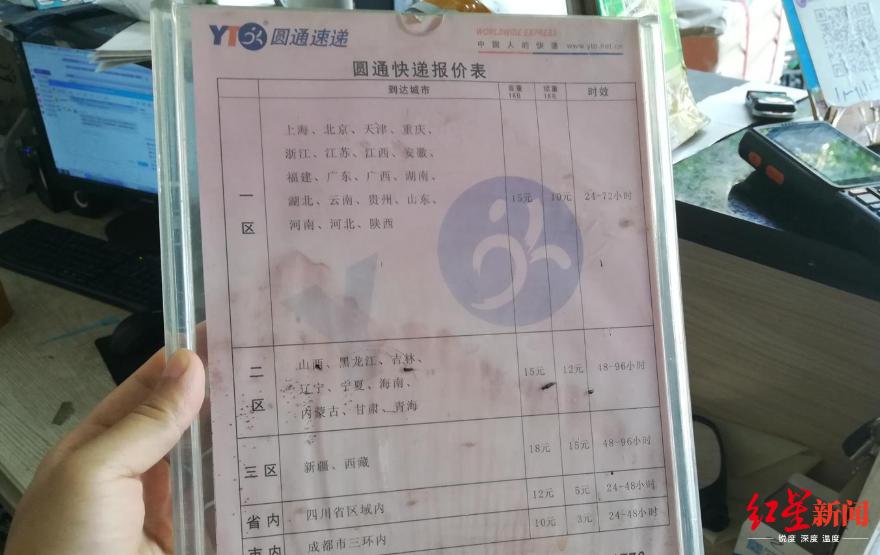 YTO 圆通速递
WORLDWIDE EXPRESS
中国人的快递 www.yto.net.cn
圆通快递报价表
到达城市 首重1KG 续重1KG 时效
一区
上海、北京、天津、重庆、
浙江、江苏、江西、安徽、
福建、广东、广西、湖南、
湖北、云南、贵州、山东、
河南、河北、陕西
15元 10元 24-72小时
二区
山西、黑龙江、吉林、
辽宁、宁夏、海南、
内蒙古、甘肃、青海
15元 12元 48-96小时
三区 新疆、西藏 18元 15元 48-96小时
省内 四川省区域内 12元 5元 24-48小时
市内 成都市三环内 10元 3元 24-48小时
红星新闻
锐度 深度 温度